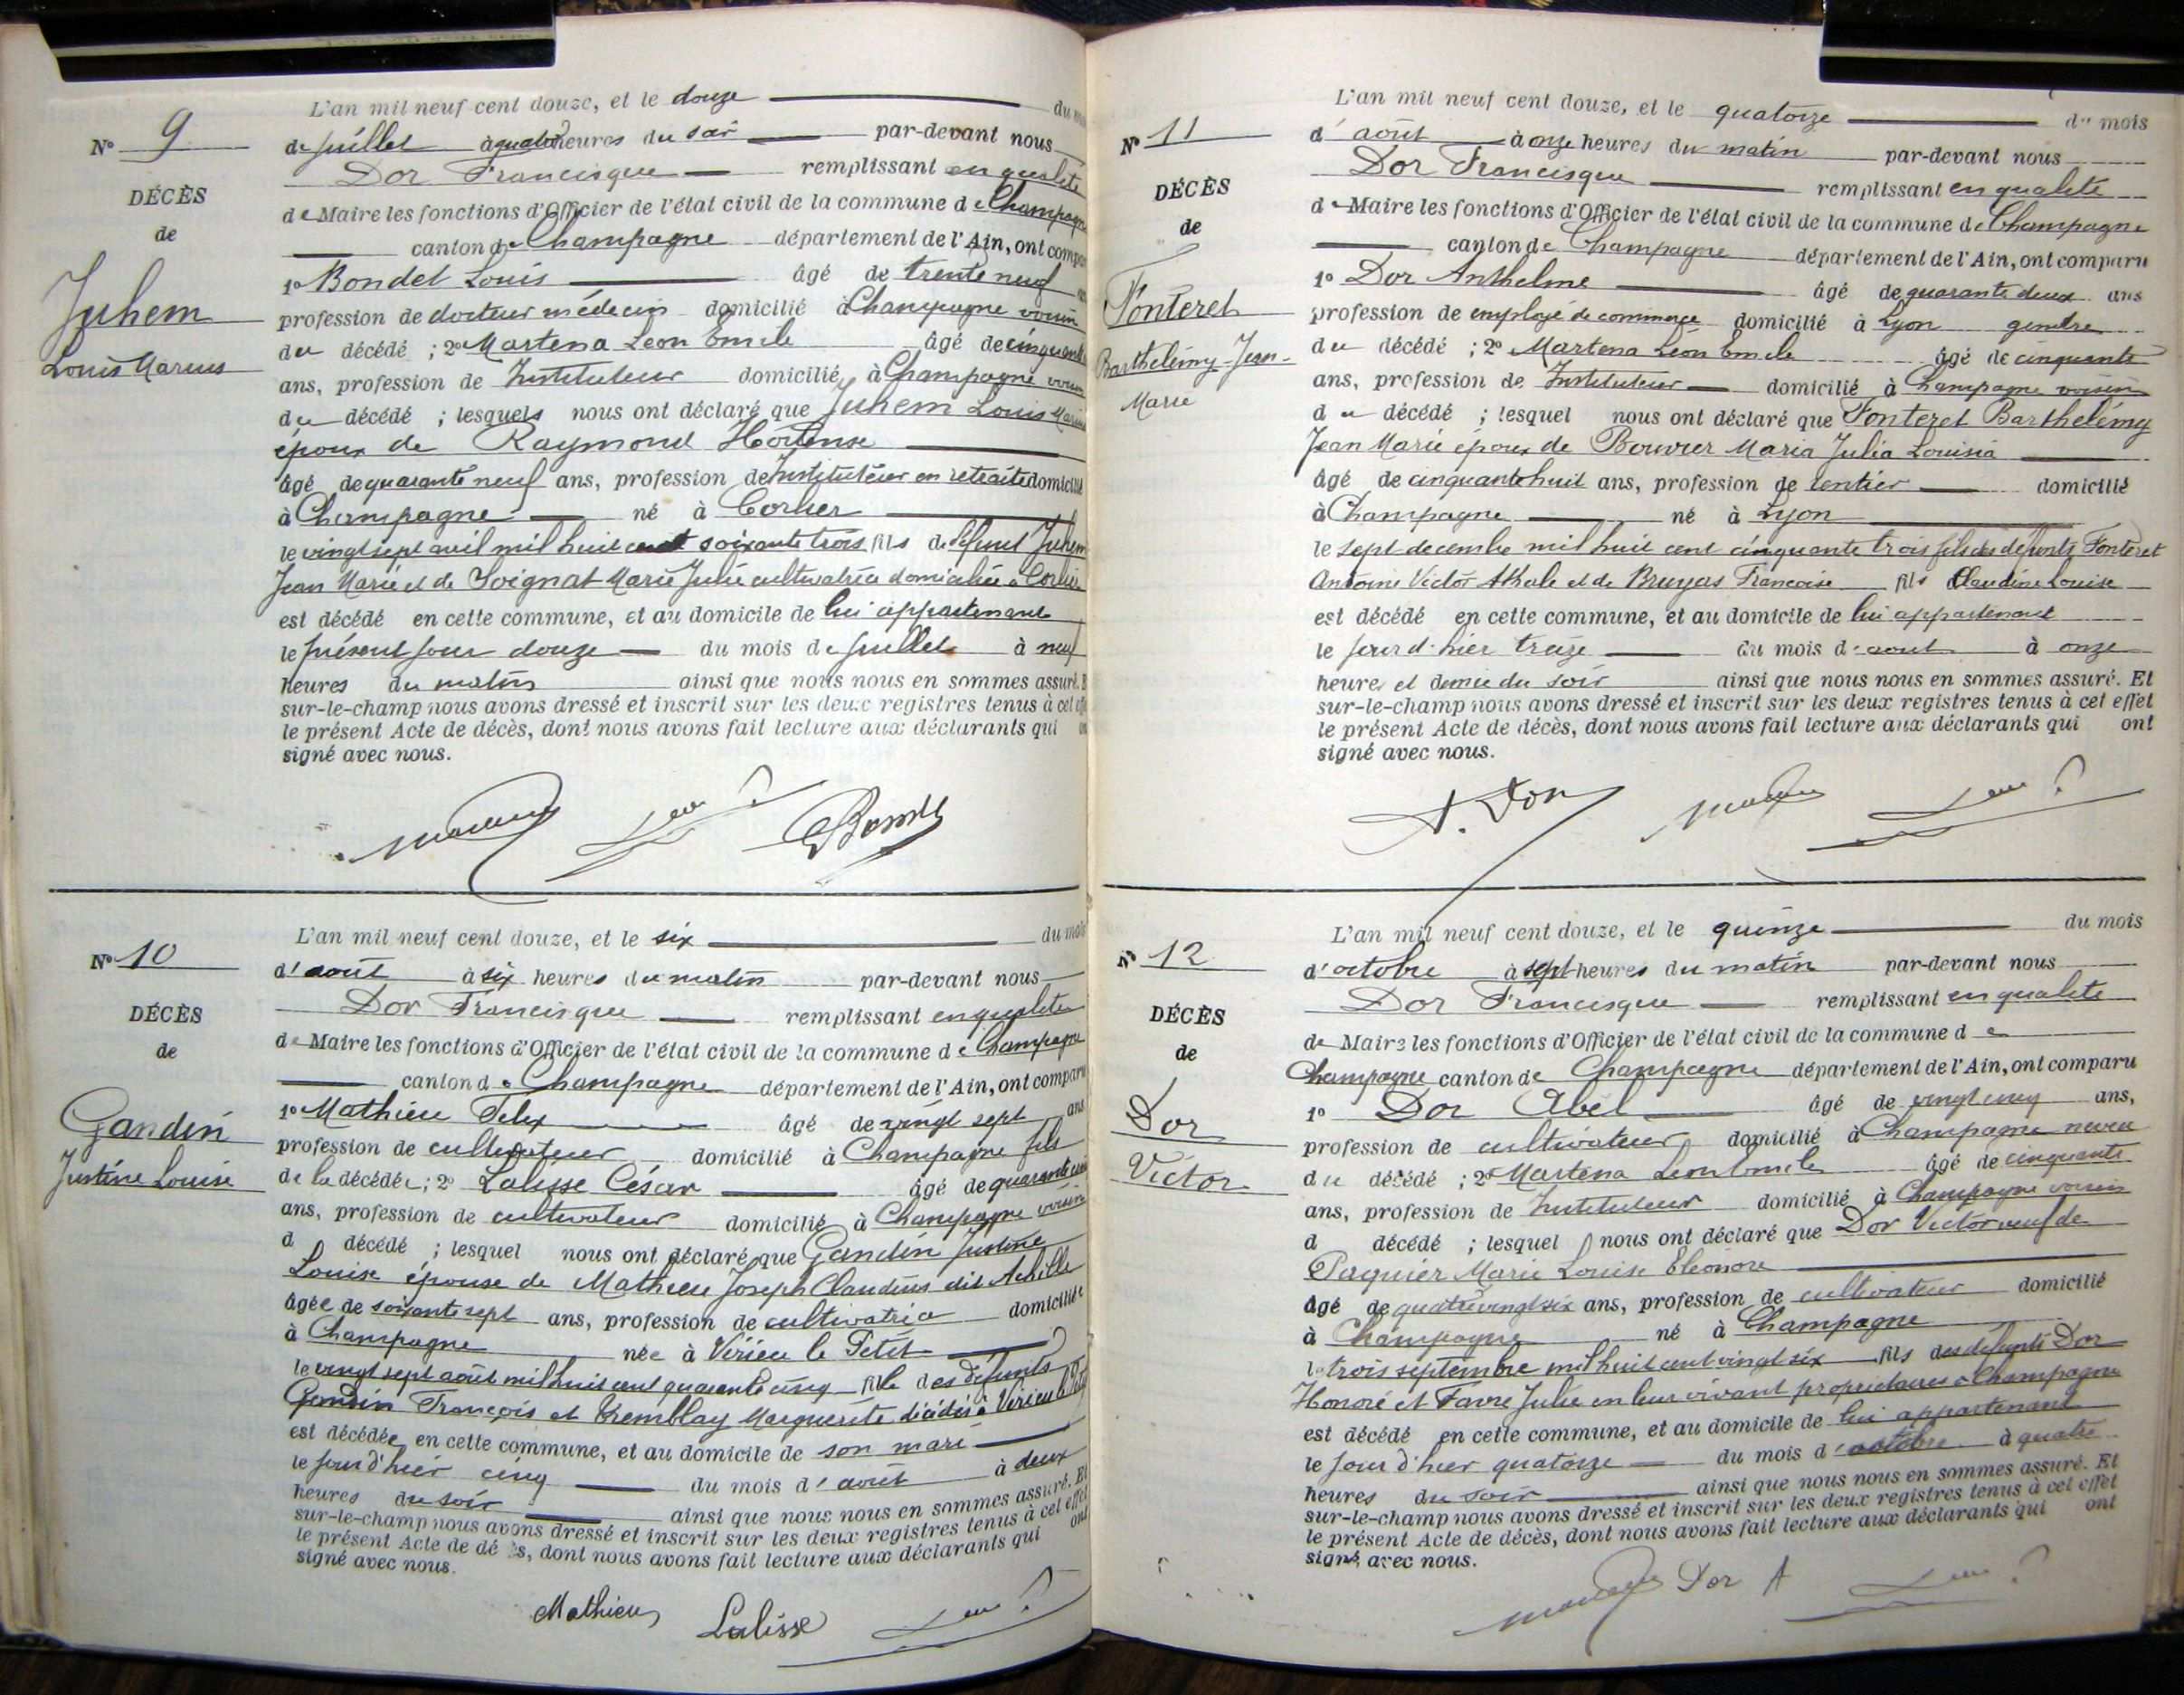 N° 9
DÉCÈS
de
Juhem
Louis Marius
L'an mil neuf cent douze, et le douze du
de Juillet à quatre heures du soir par-devant nous
Dor Francisque remplissant en qualité
de Maire les fonctions d'Officier de l'état civil de la commune de Champagne
canton de Champagne département de l'Ain, ont compa
1° Bondet Louis âgé de trente neuf
profession de docteur médecin domicilié à Champagne voisin
du décédé ; 2° Martena Leon Emile âgé de cinquante
ans, profession de Instituteur domicilié à Champagne voisin
du décédé ; lesquels nous ont déclaré que Juhem Louis Marius
époux de Raymond Hortense
âgé de quarante neuf ans, profession de Instituteur en retraite domicilié
à Champagne né à Corlier
le vingt sept avril mil huit cent soixante trois fils de defunt Juhem
Jean Marie et de Soignat Marie Julie cultivatrice domiciliée à Corlier
est décédé en cette commune, et au domicile de lui appartenant
le présent jour douze du mois de Juillet à neuf
heures du matin ainsi que nous nous en sommes assuré. E
sur-le-champ nous avons dressé et inscrit sur les deux registres tenus à cet effe
le présent Acte de décès, dont nous avons fait lecture aux déclarants qui
signé avec nous.
N° 10
DÉCÈS
de
Gandin
Justine Louise
L'an mil neuf cent douze, et le six du mois
d'août à six heures du matin par-devant nous
Dor Francisque remplissant en qualité
de Maire les fonctions d'Officier de l'état civil de la commune de Champagne
canton de Champagne département de l'Ain, ont comparu
1° Mathieu Felix âgé de vingt sept ans
profession de cultivateur domicilié à Champagne fils
de la décédée ; 2° Lalisse César âgé de quarante cinq
ans, profession de cultivateur domicilié à Champagne voisin
d décédé ; lesquel nous ont déclaré que Gandin Justine
Louise épouse de Mathieu Joseph Claudius dit Achille
âgée de soixante sept ans, profession de cultivatrice domiciliée
à Champagne née à Virieu le Petit
le vingt sept août mil huit cent quarante cinq fille des défunts
Gandin François et Tremblay Marguerite décédés à Virieu le Petit
est décédée en cette commune, et au domicile de son mari
le jour d'hier cinq du mois d'août à deux
heures du soir ainsi que nous nous en sommes assuré. Et
sur-le-champ nous avons dressé et inscrit sur les deux registres tenus à cet effet
le présent Acte de dé s, dont nous avons fait lecture aux déclarants qui ont
signé avec nous.
Mathieu Lalisse
N° 11
DÉCÈS
de
Fonteret
Barthélémy-Jean-
Marie
L'an mil neuf cent douze, et le quatorze du mois
d'août à onze heures du matin par-devant nous
Dor Francisque remplissant en qualité
de Maire les fonctions d'Officier de l'état civil de la commune de Champagne
canton de Champagne département de l'Ain, ont comparu
1° Dor Anthelme âgé de quarante deux ans
profession de employé de commerce domicilié à Lyon gendre
du décédé ; 2° Martena Léon Emile âgé de cinquante
ans, profession de Instituteur domicilié à Champagne voisin
du décédé ; lesquel nous ont déclaré que Fonteret Barthélémy
Jean Marie époux de Bouvier Maria Julia Louisia
âgé de cinquante huit ans, profession de rentier domicilié
à Champagne né à Lyon
le sept decembre mil huit cent cinquante trois fils des défunts Fonteret
Antoine Victor Athale et de Bruyas Francoise fils Claudine Louise
est décédé en cette commune, et au domicile de lui appartenant
le jour d'hier treize du mois d'aout à onze
heures et demie du soir ainsi que nous nous en sommes assuré. Et
sur-le-champ nous avons dressé et inscrit sur les deux registres tenus à cet effet
le présent Acte de décès, dont nous avons fait lecture aux déclarants qui ont
signé avec nous.
A. Dor
N° 12
DÉCÈS
de
Dor
Victor
L'an mil neuf cent douze, et le quinze du mois
d'octobre à sept heures du matin par-devant nous
Dor Francisque remplissant en qualité
de Maire les fonctions d'Officier de l'état civil de la commune de
Champagne canton de Champagne département de l'Ain, ont comparu
1° Dor Abel âgé de vingt cinq ans,
profession de cultivateur domicilié à Champagne neveu
du décédé ; 2° Martena Leon Emile âgé de cinquante
ans, profession de Instituteur domicilié à Champagne voisin
d décédé ; lesquel nous ont déclaré que Dor Victor veuf de
Paquier Marie Louise Eléonore
âgé de quatre vingt six ans, profession de cultivateur domicilié
à Champagne né à Champagne
le trois septembre mil huit cent vingt six fils des défunts Dor
Honoré et Favre Julie en leur vivant propriétaires à Champagne
est décédé en cette commune, et au domicile de lui appartenant
le jour d'hier quatorze du mois d'octobre à quatre
heures du soir ainsi que nous nous en sommes assuré. Et
sur-le-champ nous avons dressé et inscrit sur les deux registres tenus à cet effet
le présent Acte de décès, dont nous avons fait lecture aux déclarants qui ont
signé avec nous.
Dor A